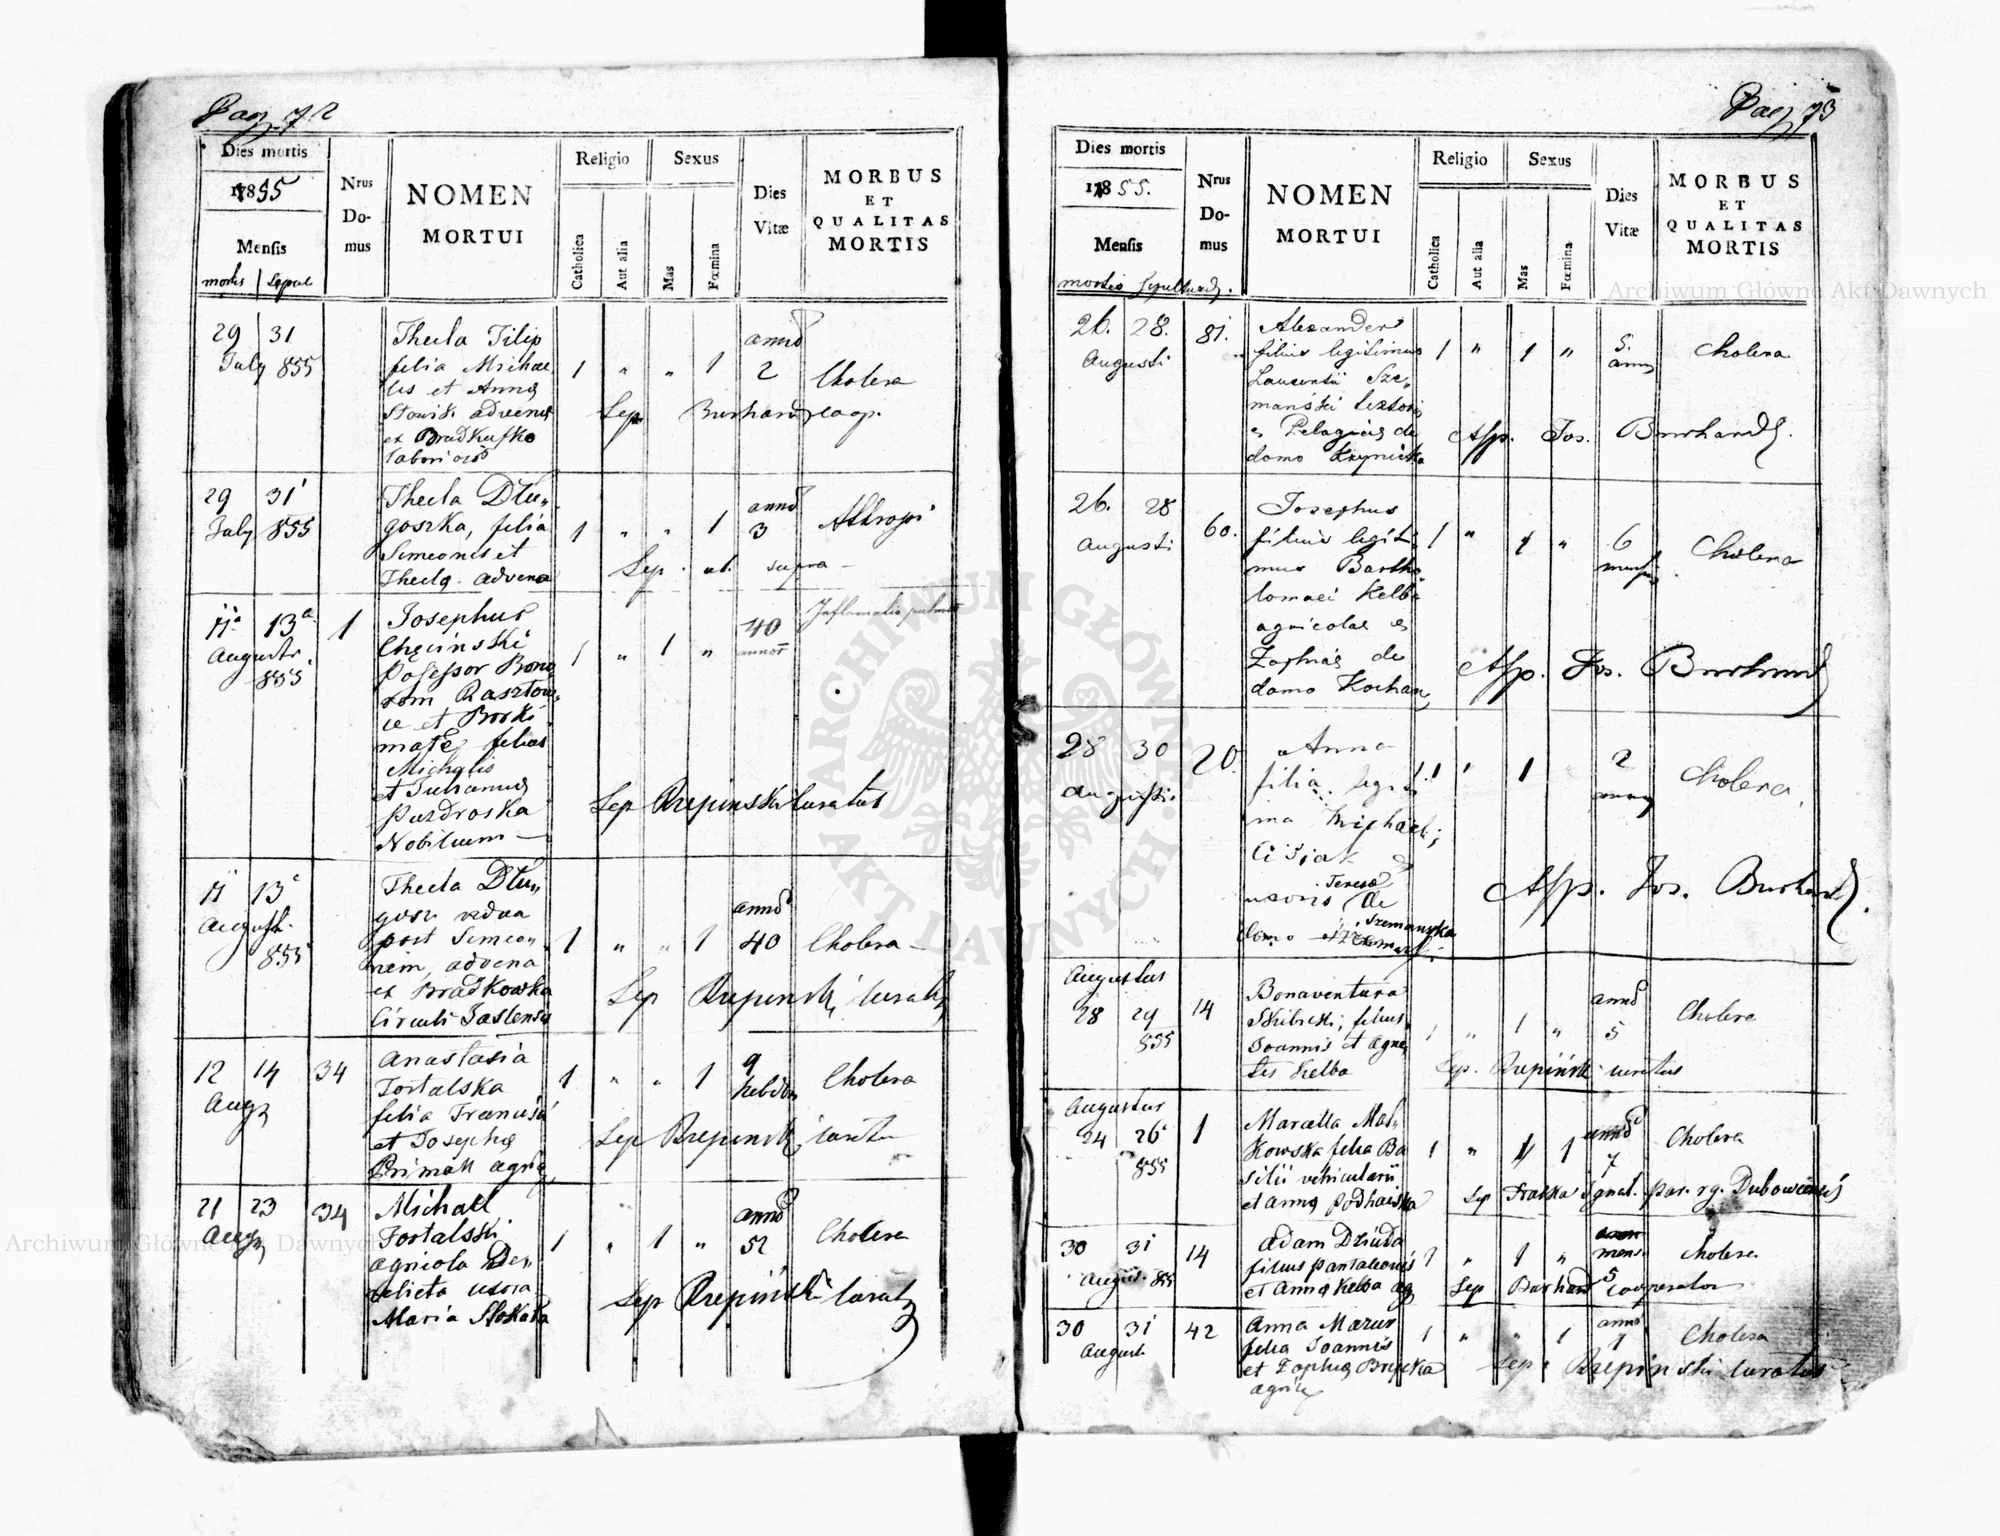 Pag. 72
Dies mortis
1855
Mensis
mortis | Sepul
Nrus
Do-
mus
NOMEN
MORTUI
Religio
Catholica
Aut alia
Sexus
Mas
Fœmina
Dies
Vitæ
MORBUS
ET
QUALITAS
MORTIS
29 31
July 855
Thecla Filip
filia Michae
lis et Annę
advenę
ex
1 " " 1
anno
2
Cholera
Sep. Burhard coop.
29 31
July 855
Thecla Dłu„
goszka, filia
Simeonis et
Theclę advena
1 " " 1
anno
3
Sep. ut. supra –
11a 13a 1
Augusti
855
Josephus
Chęcinski
Possessor Bono
rum Rasztow„
ce et Borki
małe, filius
Michaelis
et Juliannę
Puzdroska
Nobilium –
1 " 1 "
40
annor
Inflamatio pulmon
Sep Rzepinski curatus
11 13
Augusti
855
Thecla Dłu„
gosz vidua
post Simeo
nem, advena
ex Bradkowka
Circuli Jaslensis
1 " " 1
anno
40
Cholera –
Sep Rzepinski curatus
12 14 34
Aug
Anastasia
Fortalska
filia Francisci
et Josephę
Primak agric
1 " " 1
9
hebdom
Cholera
Sep Rzepinski curatus
21 23 34
Aug
Michael
Fortalski
agricola De„
relicta uxora
Maria Slokata
1 " 1 "
anno
52
Cholera
Sep Rzepinski curat
Pag 73
Dies mortis
1855.
Mensis
mortis Sepulturę.
Nrus
Do-
mus
NOMEN
MORTUI
Religio
Catholica
Aut alia
Sexus
Mas
Fœmina
Dies
Vitæ
MORBUS
ET
QUALITAS
MORTIS
26. 28. 81.
Augusti
Alexander
filius legitimus
Laurentii Sze„
manski textoris
et Pelagiae de
domo Krynicka
1 " 1 "
5.
ann
Cholera
Asp. Jos. Burhardt.
26. 28 60.
Augusti
Josephus
filius legiti
mus Bartho
lomaei Kelba
agricolae et
Zophiae de
domo Kochan
1 " 1 "
6
Cholera
Asp. Jos. Burhardt
28 30 20.
Augusti
Anna
filia legiti
ma Michaeli
Cisiak
Teresa
uxoris de
Szemanyska
domo
1 ' 1
2
Cholera.
Asp. Jos. Burhardt.
Augustus
28 29 14
855
Bonaventura
Skibicki, filius
Joannis et Agne
tis Kelba
1 " 1 "
anno
5
Cholera
Sep. Rzepinski curatus
Augustus
24 26 1
855
Marcella Mas„
kowska filia Ba
silii vehicularii
et Annę Podhaiska
1 " 1
anno
7
Cholera
Sep Fraska Ignat. par. rg. Dubowcensis
30 31 14
August. 855
Adam Dziuda
filius Pantaleonis
et Annę Kelba ag
1 " 1 "
mens
5
Cholera
Sep Burhard cooperator
30 31 42
August.
Anna Mazur
filia Joannis
et Zophię
agric
1 " " 1
anno
1
Cholera
Sep. Rzepinski curatus
Archiwum Główne Akt Dawnych
ARCHIWUM GŁÓWNE AKT DAWNYCH
Archiwum Główne Akt Dawnych